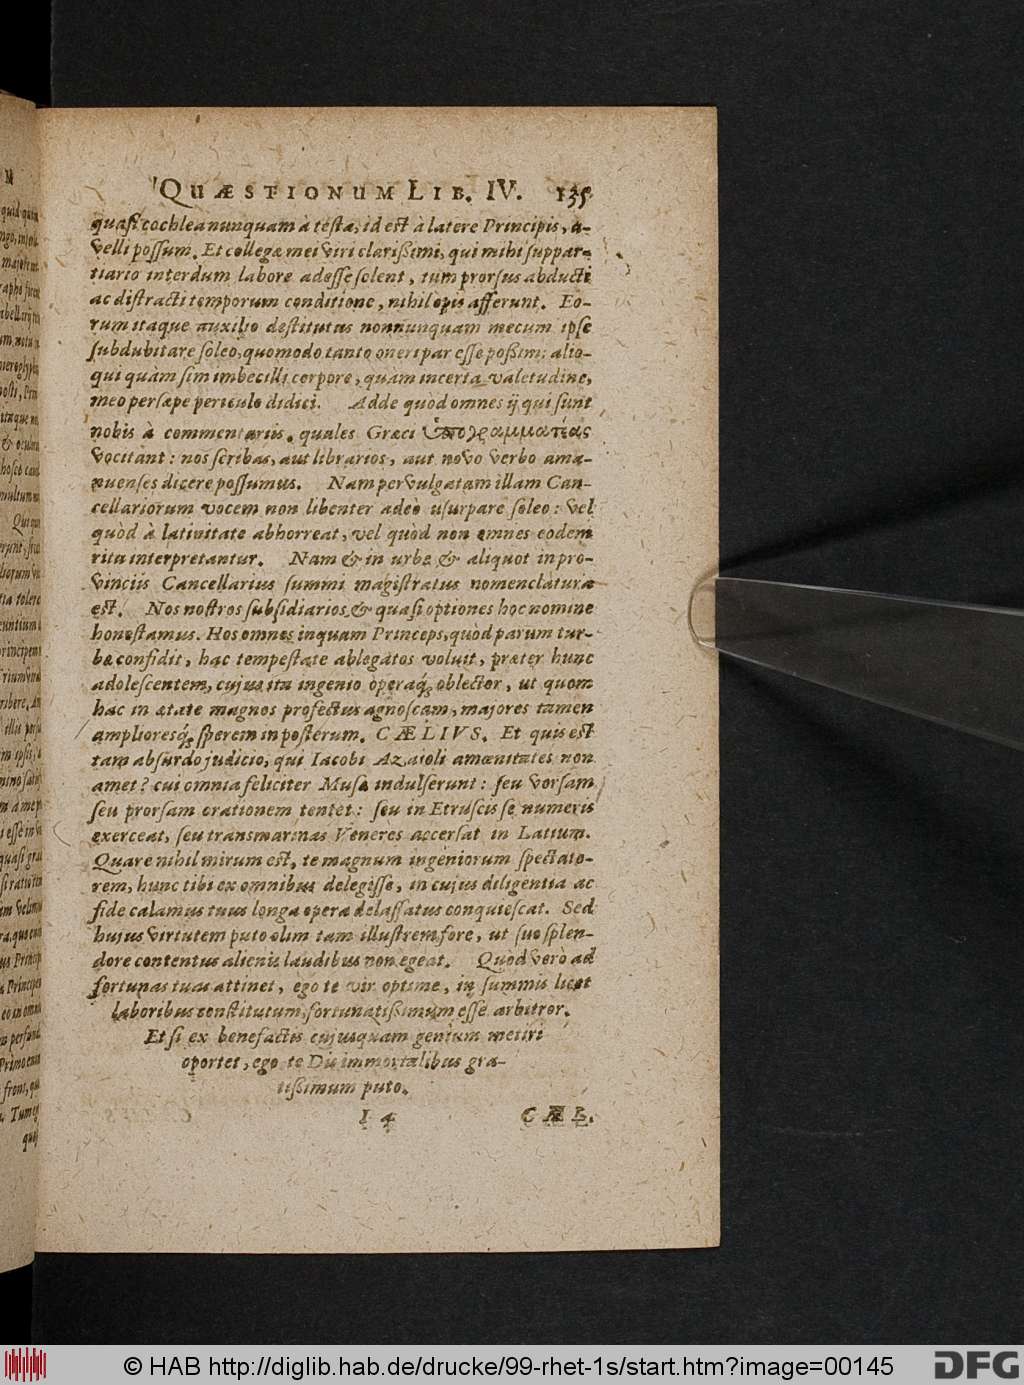 QUÆSTIONUM LIB. IV. 135
quasi cochlea nunquam à testa, id est à latere Principis, a-
velli possum. Et collegæ mei viri clarißimi, qui mihi suppar-
tiario interdum labore adesse solent, tum prorsus abducti
ac distracti temporum conditione, nihil opis afferunt. Eo-
rum itaque auxilio destitutus nonnunquam mecum ipse
subdubitare soleo, quomodo tanto oneri par esse poßim: alio-
qui quàm sim imbecilli corpore, quàm incerta valetudine,
meo persæpe periculo didici. Adde quòd omnes ij qui sunt
nobis à commentariis, quales Græci ὑπογραμματίας
vocitant: nos scribas, aut librarios, aut novo verbo ama-
nuenses dicere possumus. Nam pervulgatam illam Can-
cellariorum vocem non libenter adeò usurpare soleo: vel
quòd à latinitate abhorreat, vel quòd non omnes eodem
ritu interpretantur. Nam & in urbe & aliquot in pro-
vinciis Cancellarius summi magistratus nomenclatura
est. Nos nostros subsidiarios & quasi optiones hoc nomine
honestamus. Hos omnes inquam Princeps, quòd parum tur-
bæ confidit, hac tempestate ablegatos voluit, præter hunc
adolescentem, cujus ita ingenio operaq; oblector, ut quom
hac in ætate magnos profectus agnoscam, majores tamen
ampliores�q; sperem in posterum. CÆLIVS. Et quis est
tam absurdo judicio, qui Iacobi Azaioli amœnitates non
amet? cui omnia feliciter Musæ indulserunt: seu vorsam
seu prorsam orationem tentet: seu in Etruscis se numeris
exerceat, seu transmarinas Veneres accersat in Latium.
Quare nihil mirum est, te magnum ingeniorum spectato-
rem, hunc tibi ex omnibus delegisse, in cujus diligentia ac
fide calamus tuus longa opera delassatus conquiescat. Sed
hujus virtutem puto olim tam illustrem fore, ut suo splen-
dore contentus alienis laudibus non egeat. Quòd verò ad
fortunas tuas attinet, ego te vir optime, in summis licet
laboribus constitutum, fortunatißimum esse arbitror.
Et si ex benefactis cujusquam genium metiri
oportet, ego te Diis immortalibus gra-
tißimum puto.
I 4 CÆL.
M
© HAB http://diglib.hab.de/drucke/99-rhet-1s/start.htm?image=00145
DFG